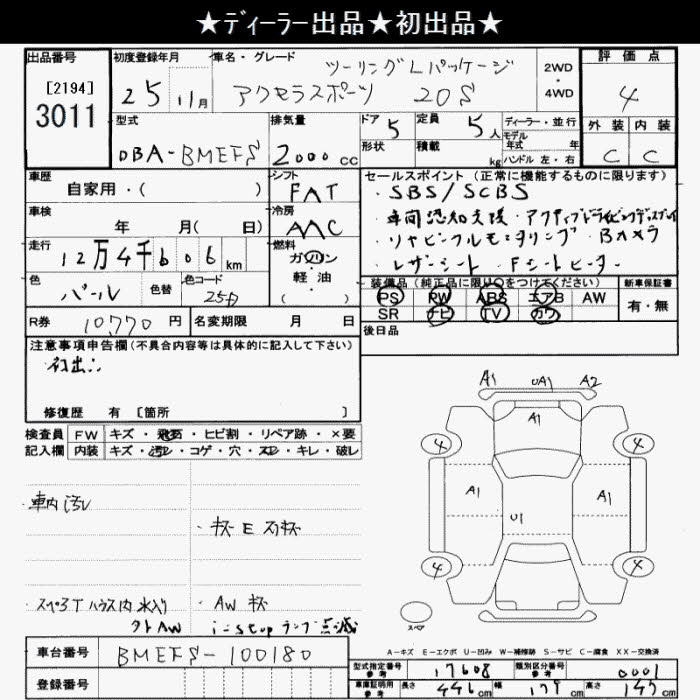 ★ディーラー出品★初出品★
出品番号
[2194]
3011
初度登録年月
25 11月
車名・グレード
ツーリングLパッケージ
アクセラスポーツ 20S
2WD
・
4WD
評価点
4
外装 内装
C C
型式
DBA-BMEFS
排気量
2000cc
ドア 5
形状
定員 5人
積載 kg
ディーラー・並行
モデル年式 年
ハンドル 左・右
車歴
自家用・( )
シフト
FAT
車検
年 月( 日)
冷房
AAC
走行
12万4千606km
燃料
ガソリン
・
軽油
・
( )
色
パール
色替
色コード
25D
R券 10,770円
名変期限 月 日
セールスポイント(正常に機能するものに限ります)
・SBS/SCBS
・車間認知支援・アクティブドライビングディスプレイ
・リヤビークルモニタリング・Bカメラ
・レザーシート・Fシートヒーター
装備品(純正品に限り○をつけてください)
PS PW ABS エアB AW
SR ナビ TV カワ
新車保証書
有・無
後日品
注意事項申告欄(不具合内容等は具体的に記入して下さい)
初出品
修復歴 有 [箇所 ]
検査員
記入欄
FW キズ・飛石・ヒビ割・リペア跡・×要
内装 キズ・汚レ・コゲ・穴・スレ・キレ・破レ
・車内汚レ
・キズ E スリキズ
・スペアTハウス内水入り
外AW
・AWキズ
i-stopランプ点滅
A1 UA1 A2
A1
4 4
A1 U1 A1
4 4
スペア
A-キズ E-エクボ U-凹み W-補修跡 S-サビ C-腐食 XX-交換済
車台番号 BMEFS-100180
登録番号
型式指定番号 参考 17608
類別区分番号 参考 0001
車庫証明用 参考 長さ 446cm 幅 179cm 高さ 147cm